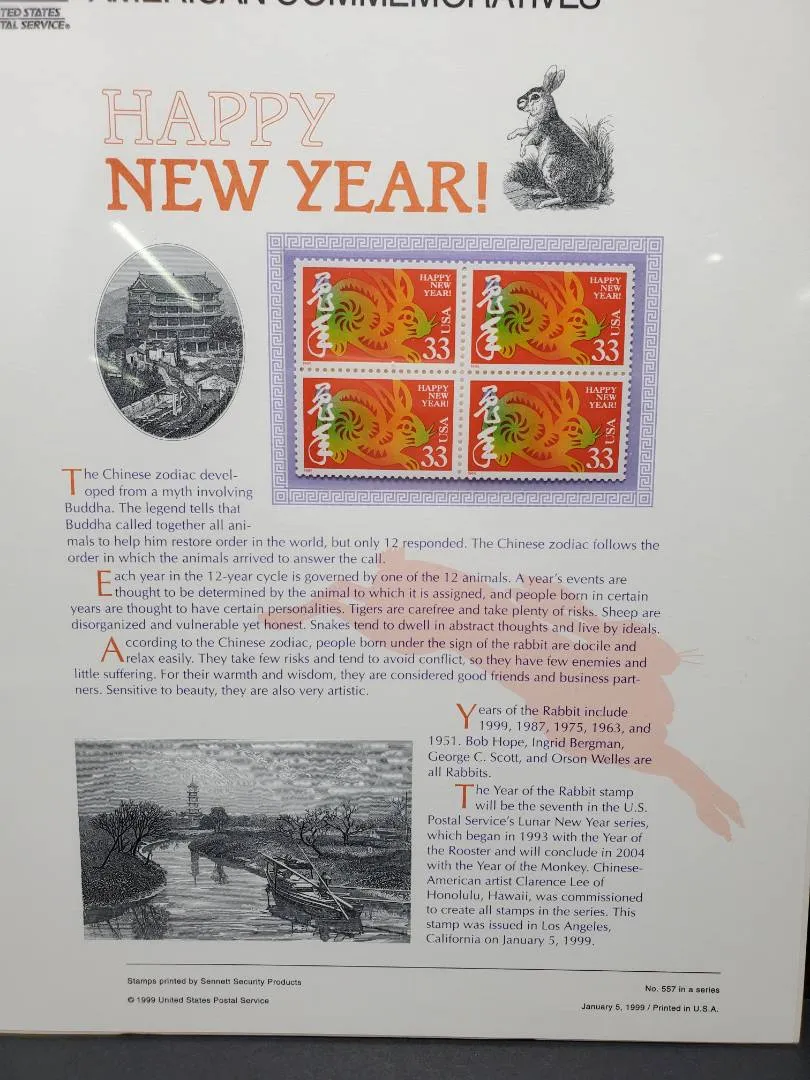 UNITED STATES
POSTAL SERVICE®
AMERICAN COMMEMORATIVES
HAPPY
NEW YEAR!
HAPPY
NEW
YEAR!
USA
33
HAPPY
NEW
YEAR!
USA
33
HAPPY
NEW
YEAR!
USA
33
HAPPY
NEW
YEAR!
USA
33
The Chinese zodiac devel-
oped from a myth involving
Buddha. The legend tells that
Buddha called together all ani-
mals to help him restore order in the world, but only 12 responded. The Chinese zodiac follows the
order in which the animals arrived to answer the call.
Each year in the 12-year cycle is governed by one of the 12 animals. A year's events are
thought to be determined by the animal to which it is assigned, and people born in certain
years are thought to have certain personalities. Tigers are carefree and take plenty of risks. Sheep are
disorganized and vulnerable yet honest. Snakes tend to dwell in abstract thoughts and live by ideals.
According to the Chinese zodiac, people born under the sign of the rabbit are docile and
relax easily. They take few risks and tend to avoid conflict, so they have few enemies and
little suffering. For their warmth and wisdom, they are considered good friends and business part-
ners. Sensitive to beauty, they are also very artistic.
Years of the Rabbit include
1999, 1987, 1975, 1963, and
1951. Bob Hope, Ingrid Bergman,
George C. Scott, and Orson Welles are
all Rabbits.
The Year of the Rabbit stamp
will be the seventh in the U.S.
Postal Service's Lunar New Year series,
which began in 1993 with the Year of
the Rooster and will conclude in 2004
with the Year of the Monkey. Chinese-
American artist Clarence Lee of
Honolulu, Hawaii, was commissioned
to create all stamps in the series. This
stamp was issued in Los Angeles,
California on January 5, 1999.
Stamps printed by Sennett Security Products
© 1999 United States Postal Service
No. 557 in a series
January 5, 1999 / Printed in U.S.A.